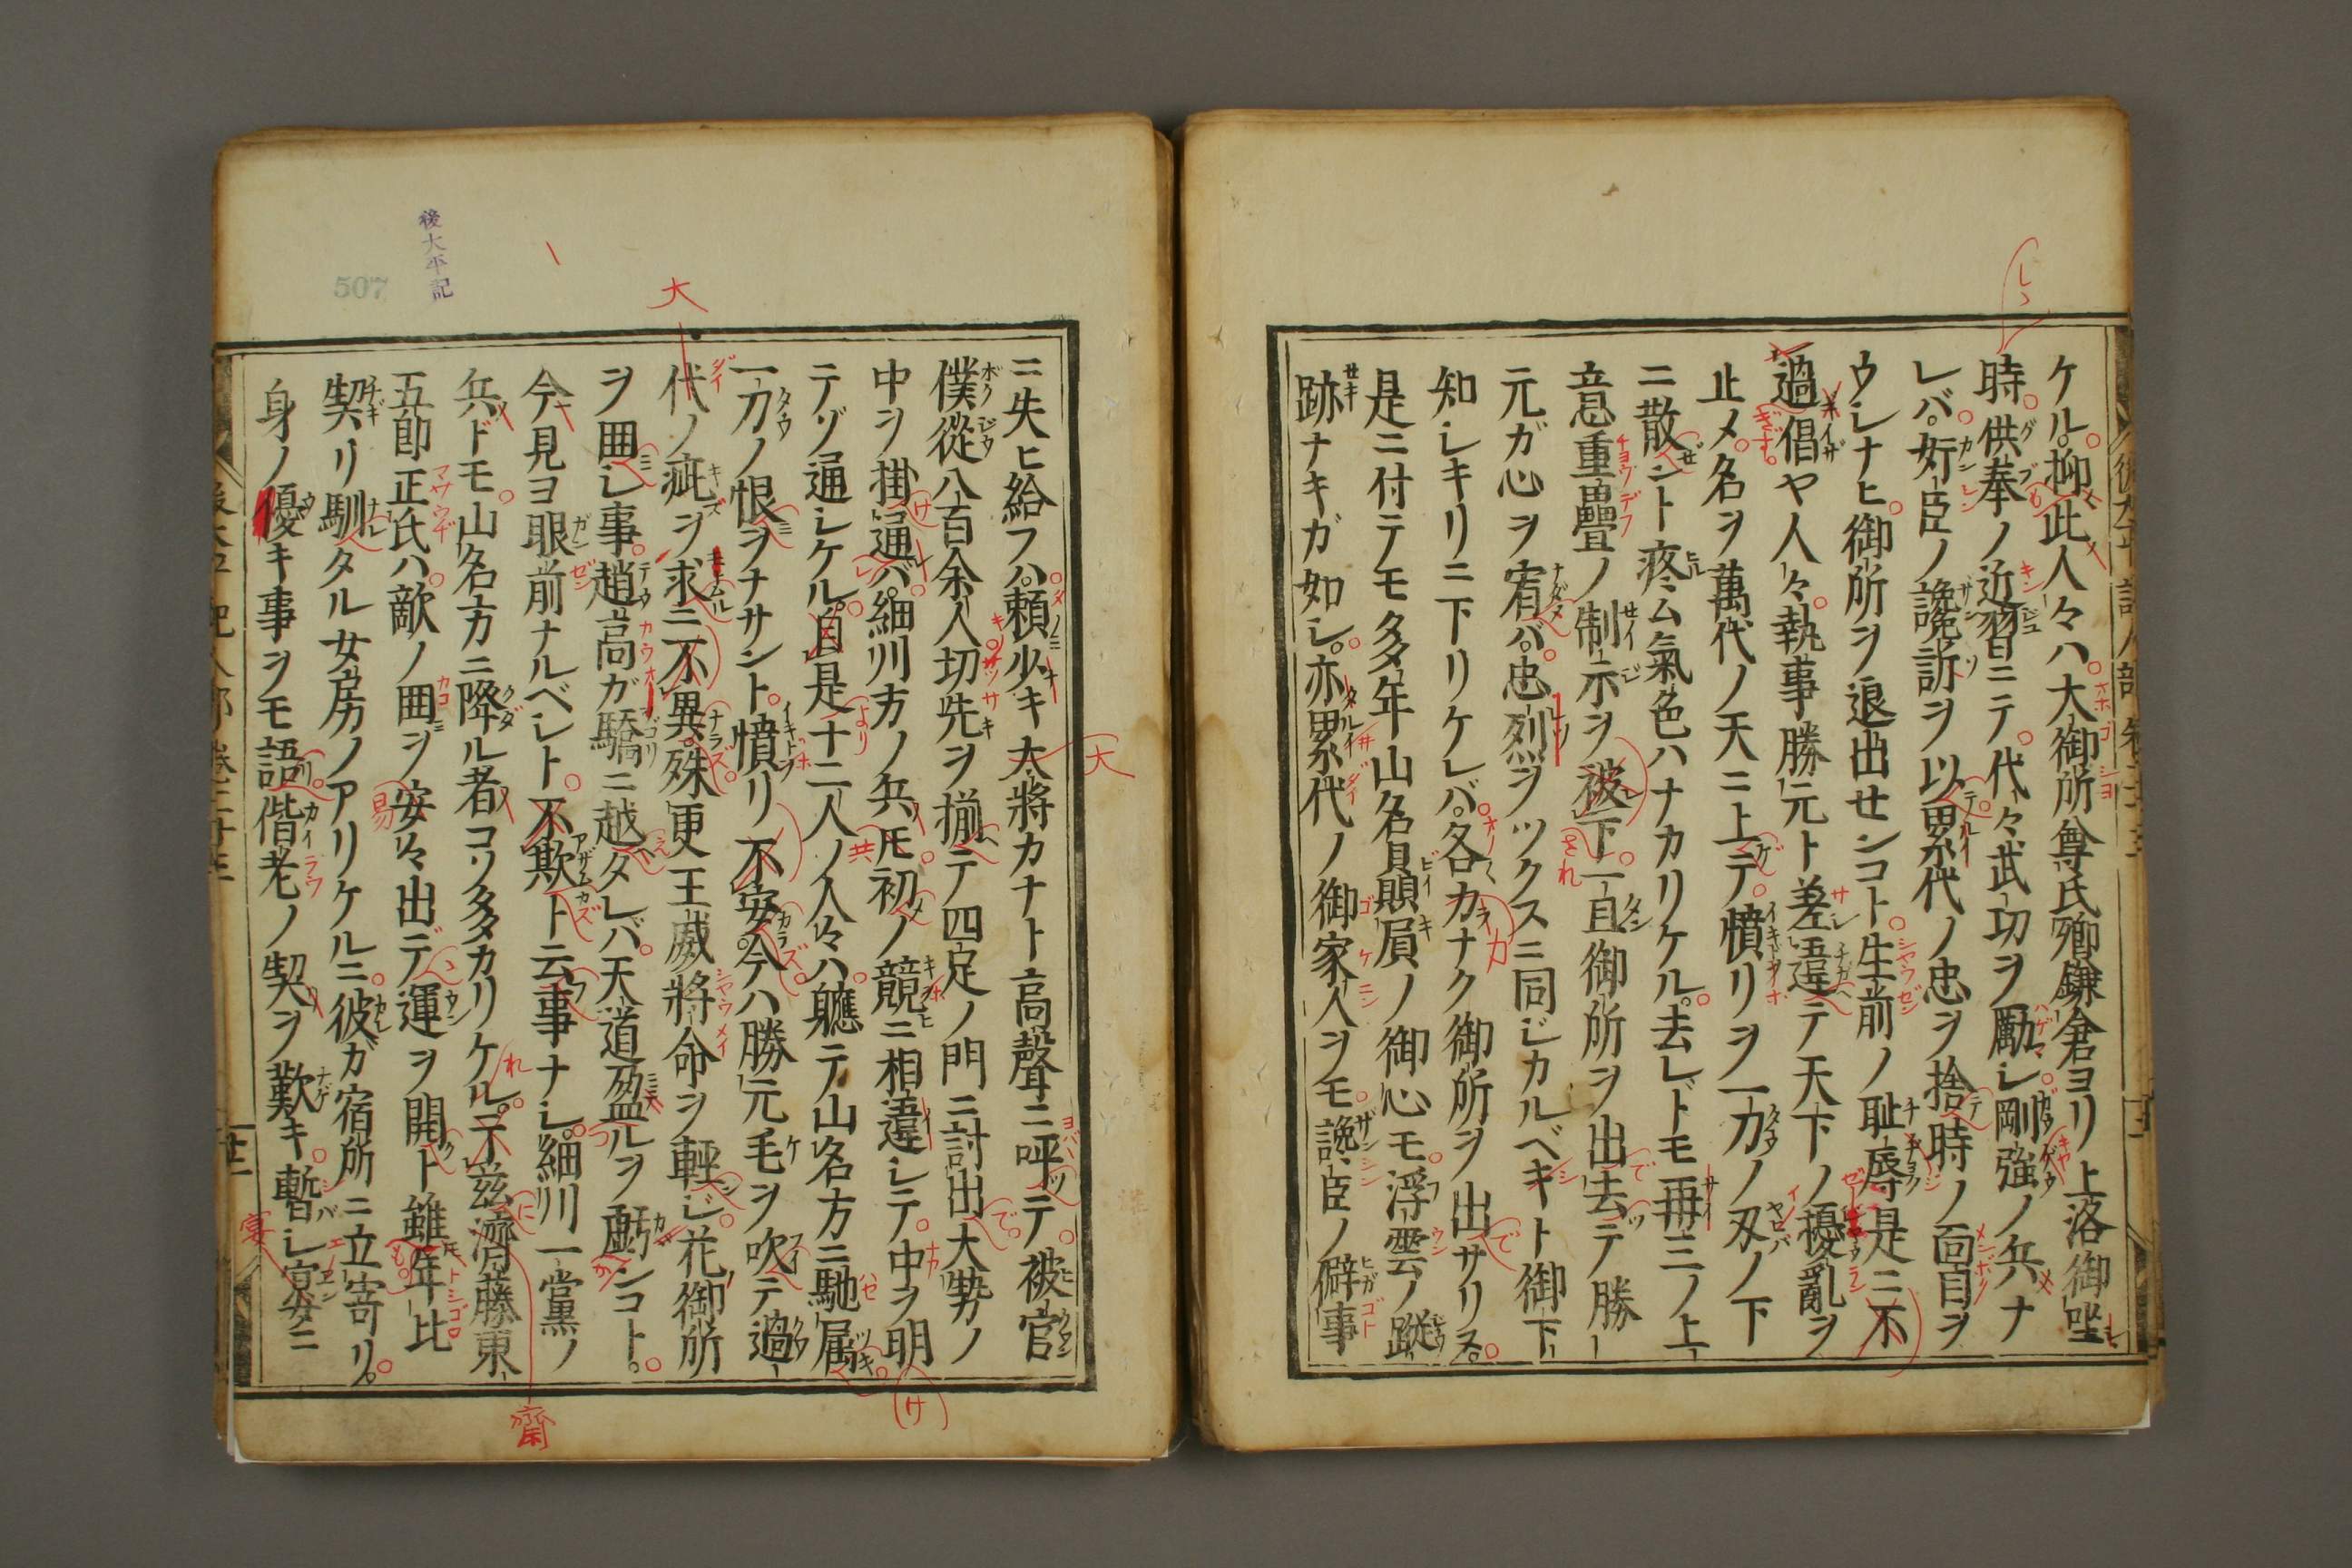 ケル。抑此人々ハ大御所尊氏卿鎌倉ヨリ上洛御坐
時供奉ノ近習ニテ代々武切ヲ勵シ剛強ノ兵ナ
レバ。奸臣ノ讒訴ヲ以累代ノ忠ヲ捨時ノ面目ヲ
ウシナヒ御所ヲ退出センコト生前ノ耻辱是ニ不
過倡ヤ人々執事勝元ト差違テ天下ノ擾亂ヲ
止メ名ヲ萬代ノ天ニ上テ憤リヲ一刀ノ刄ノ下
ニ散ント疼ム氣色ハナカリケル。去レドモ再三ノ上
意重疊ノ制示ヲ被下一且御所ヲ出去テ勝
元ガ心ヲ宥バ。忠烈ヲツクスニ同ジカルベキト御下
知シキリニ下リケレバ。各力ナク御所ヲ出サリヌ。
是ニ付テモ多年山名員顯屓ノ御心モ浮雲ノ蹤
跡ナキガ如シ。亦累代ノ御家人ヲモ讒臣ノ僻事
ニ失ヒ給フハ。頼少キ大將カナト高聲ニ呼テ被官
僕從八百余人切先ヲ揃テ四足ノ門ニ討出大勢ノ
中ヲ掛通バ。細川方ノ兵ドモ初ノ競ニ相違シテ中ヲ明
テゾ通シケル。自是十二人ノ人々ハ軈テ山名方ニ馳属
一刀ノ恨ヲナサント憤リ不安。今ハ勝元毛ヲ吹テ過
代ノ疵ヲ求ニ不異。殊更王威將命ヲ輕ジ花御所
ヲ囲シ事。趙高ガ驕ニ越タレバ天道盈ルヲ虧ンコト。
今見ヨ眼前ナルベシト不欺ト云事ナシ。細川一黨ノ
兵ドモ山名方ニ降ル者コソ多カリケル。于茲濟藤東
五郎正氏ハ敵ノ囲ヲ安々出デ運ヲ開ト雖年比
契リ馴タル女房ノアリケルニ彼ガ宿所ニ立寄リ。
身ノ優キ事ヲモ語偕老ノ契ヲ歎キ暫シ宴ニ
後大平記
507